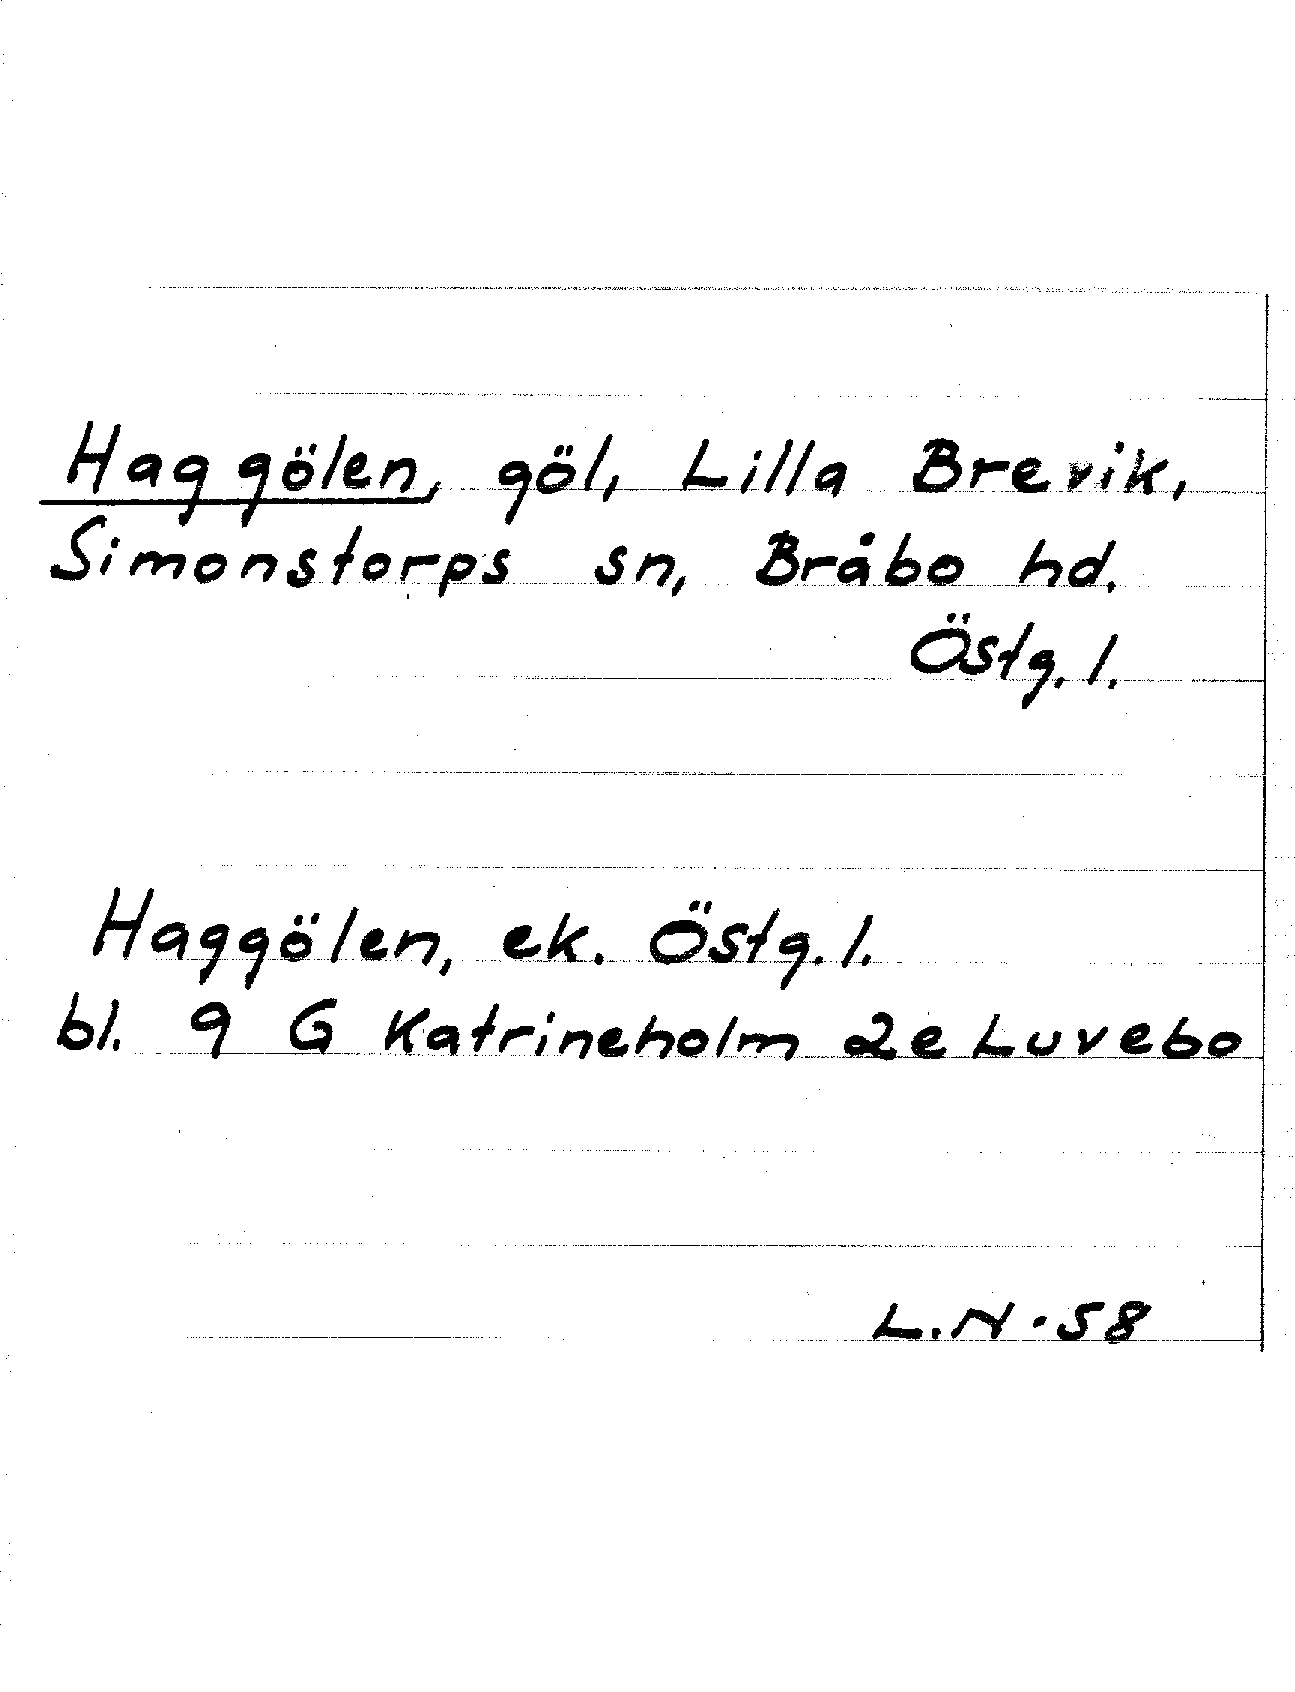 Haggölen, göl, Lilla Brevik,
Simonstorps sn, Bråbo hd.
Östg. l.
Haggölen, ek. Östg. l.
bl. 9 G Katrineholm 2e Luvebo
L.N. 58